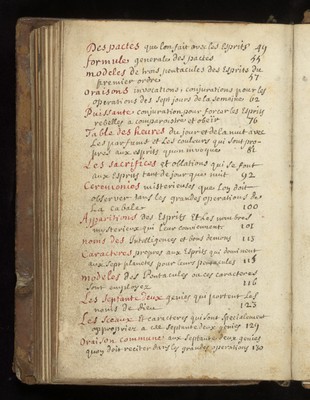 Des pactes que lon fait avec les Esprits 49
formules generalu des pactes 55
modeles de trois pentacules des Esprits du
premier ordre 57
oraisons invocations, conjurations pour les
operations des sept jours de la semaine 62
Puissante conjuration pour forcer les Esprits
rebelles a comparoitre et obeir 76
Table des heures du jour et de la nuit avec
Les parfums et Les couleurs qui sont pro-
pres aux esprits quon invoque 81
Les sacrifices et oblations qui se font
aux Esprits tant de jour que nuit 92
Ceremonies misterieuses que Lon doit
observer dans les grandes operations de
La cabale 100
Apparitions des Esprits Et Les nombres
mysterieux qui Leur conviennent 101
noms des Intelligences et bons demons 113
Caracteres propres aux Esprits qui dominent
aux sept planetes pour leurs pentacules 115
modeles des Pentacules ou ces caracteres
sont employez 116
Les septante deux genies qui portent Les
noms de Dieu 123
Les sceaux Et caracteres qui sont specialement
appropriez a ces septante deux genies 129
Oraison commune aux septante deux genies
quon doit reciter dans les grandes operations 130